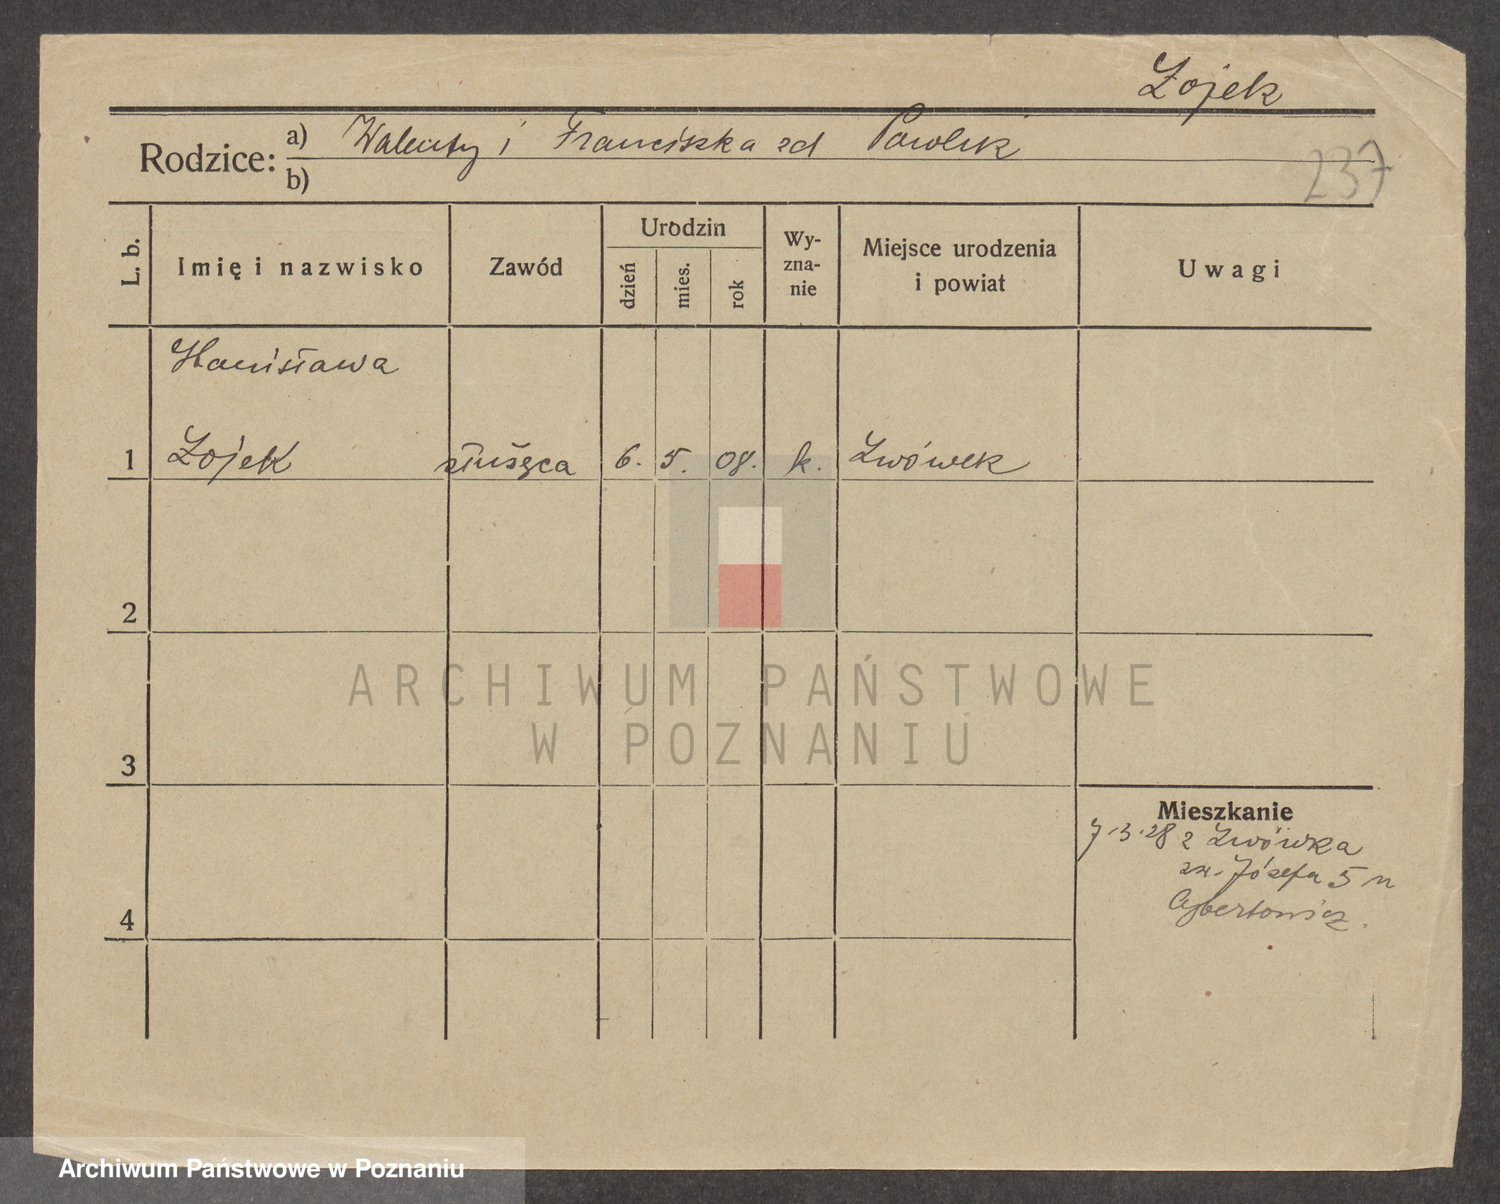 Łojek
Rodzice: a) Walenty i Franciszka zd Pawlik
b)
237
L. b. Imię i nazwisko Zawód Urodzin dzień mies. rok Wy-zna-nie Miejsce urodzenia i powiat Uwagi
Stanisława
1 Łojek służąca 6. 5. 08. k. Lwówek
2
3
4
Mieszkanie
7.3.28 z Lwówka
św. Józefa 5 n
Cybertowicz.
ARCHIWUM PAŃSTWOWE
W POZNANIU
Archiwum Państwowe w Poznaniu